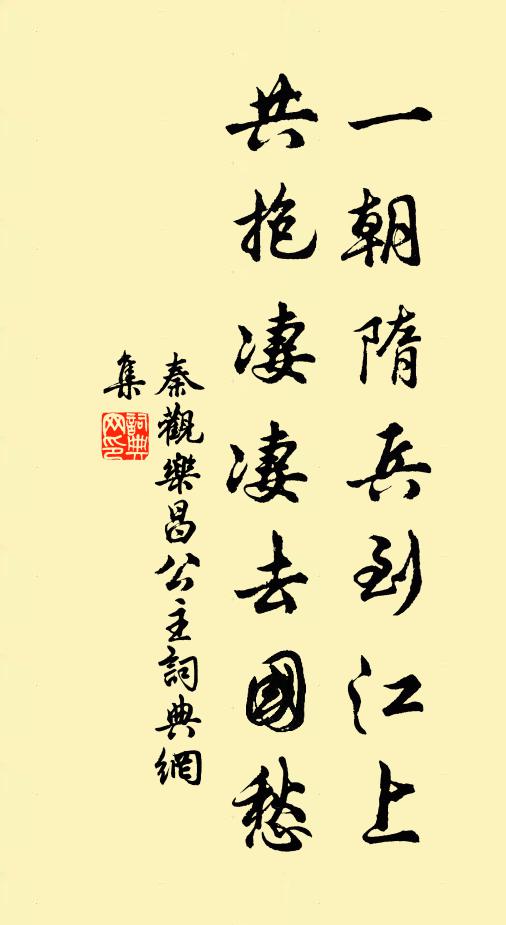 一朝隋兵到江上
共抱凄凄去國愁
秦觀樂昌公主詞典網
集
詞典网印